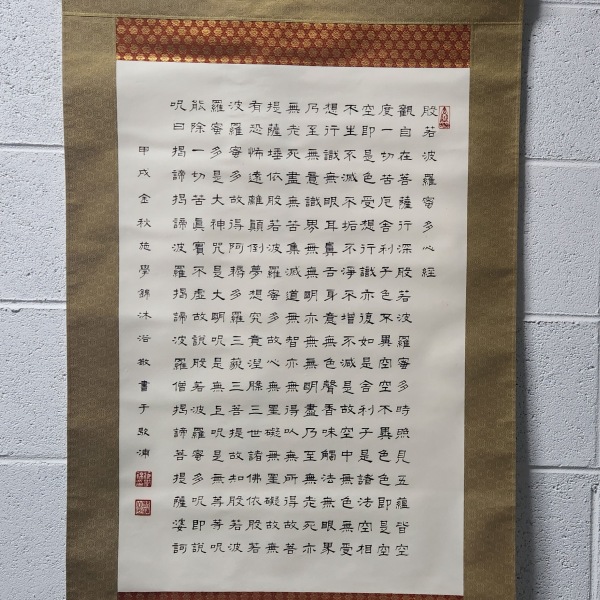 般若波羅蜜多心經
觀自在菩薩行深般若波羅蜜多時照見五蘊皆空
度一切苦厄舍利子色不異空空不異色色即是空
空即是色受想行識亦復如是舍利子是諸法空相
不生不滅不垢不淨不增不減是故空中無色無受
想行識無眼耳鼻舌身意無色聲香味觸法無眼界
乃至無意識界無無明亦無無明盡乃至無老死亦
無老死盡無苦集滅道無智亦無得以無所得故菩
提薩埵依般若波羅蜜多故心無罣礙無罣礙故無
有恐怖遠離顛倒夢想究竟涅槃三世諸佛依般若
波羅蜜多故得阿耨多羅三藐三菩提故知般若波
羅蜜多是大神呪是大明呪是無上呪是無等等呪
能除一切苦眞實不虛故說般若波羅蜜多呪即說
呪曰揭諦揭諦波羅揭諦波羅僧揭諦菩提薩婆訶
甲戌金秋施學錦沐浴敬書于歇浦